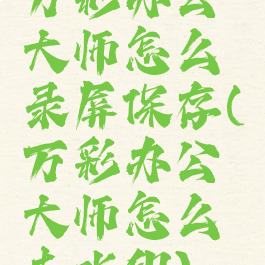 万彩办公
大师怎么
录屏保存(
万彩办公
大师怎么
去水印)